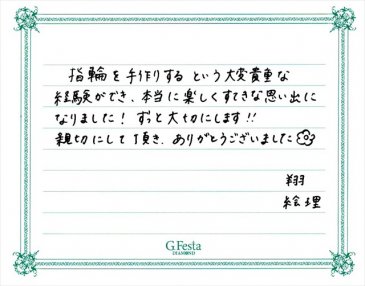 指輪を手作りするという大変貴重な
経験ができ、本当に楽しくすてきな思い出に
なりました！ずっと大切にします!!
親切にして頂き、ありがとうございました
翔
絵理
G.Festa
DIAMOND